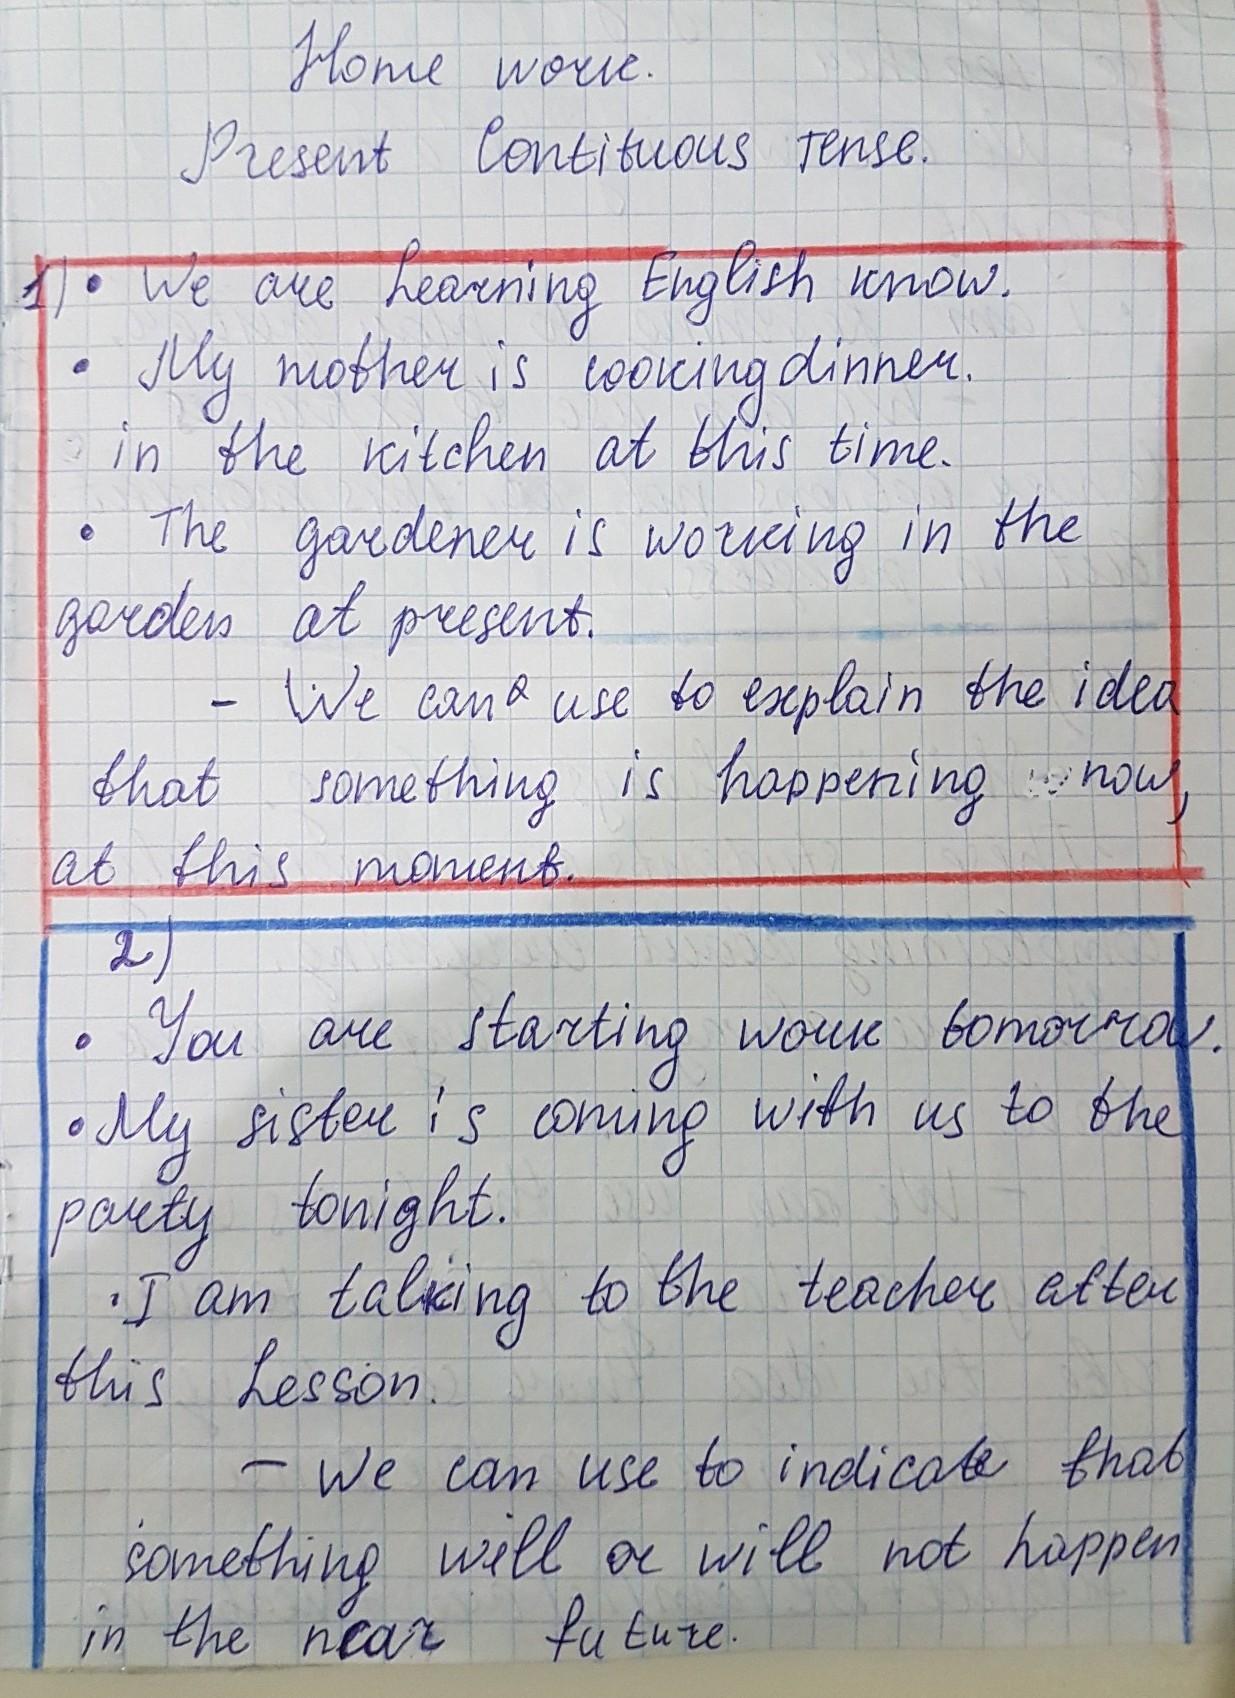 Home work.
Present Contituous tense.
1) • We are Learning English know.
• My mother is cooking dinner.
in the kitchen at this time.
• The gardener is working in the
garden at present.
- We can use to explain the idea
that something is happening now,
at this moment.
2)
• You are starting work tomorrow.
• My sister is coming with us to the
party tonight.
• I am talking to the teacher after
this Lesson.
- We can use to indicate that
something will or will not happen
in the near future.